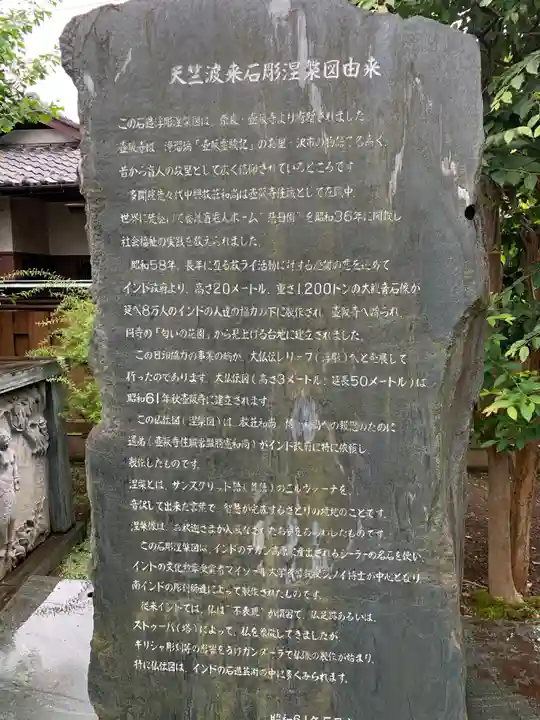 天竺波来石彫涅槃図由来
この石造浮彫涅槃図は、奈良・壺阪寺より寄贈されました。
壺阪寺は、浄瑠璃「壺坂霊験記」のお里・沢市の物語で名高く、
昔から盲人の故里として広く信仰されているところです
多聞院先々代中興教荘和尚は壺阪寺住職として在職中、
世界に先がけて養護盲老人ホーム"慈母園"を昭和36年に開設し
社会福祉の実践を教えられました。
昭和58年、長年に亘る救ライ活動に対する感謝の意を込めて
インド政府より、高さ20メートル、重さ1,200トンの大観音石像が
延べ8万人のインドの人達の協力の下に製作され、壺阪寺へ贈られ、
同寺の「匂いの花園」から見上げる台地に建立されました。
この日印協力の事業の絆が、大仏伝レリーフ(浮彫)へと発展して
行ったのであります。大仏伝図(高さ3メートル:延長50メートル)は
昭和61年秋壺阪寺に建立されます。
この仏伝図(涅槃図)は、教荘和尚 への報恩のために
遺弟(壺阪寺住職常盤勝憲和尚)がインド政府に特に依頼し、
製作したものです。
涅槃とは、サンスクリット語(梵語)のニルヴァーナを、
音訳して出来た言葉で 智慧が完成するさとりの境地のことです。
涅槃像は お釈迦さまが入滅なさったお姿をあらわしたものです。
この石彫涅槃図は、インドのデカン高原に産出されるシーラーの名石を使い、
インドの文化勲章受賞者マイソール大学 シノイ博士が中心となり
南インドの彫刻師達によって製作されたものです。
従来インドでは、仏は"不表現"が慣習で、仏足跡あるいは、
ストゥーパ(塔)によって、仏を崇拝してきましたが、
ギリシャ彫刻等の影響をうけガンダーラで仏像の製作が始まり、
特に仏伝図は、インドの石造芸術の中に多くみられます。
昭和61年